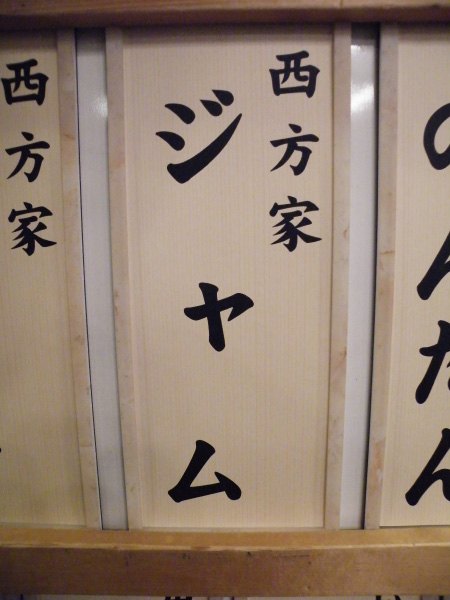 のんだん
西方家
ジャム
西方家